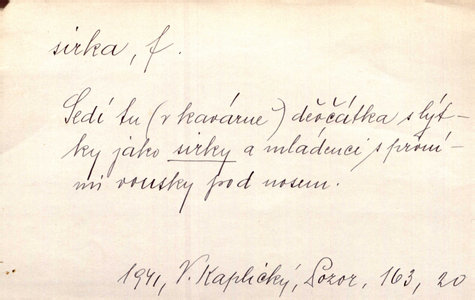 sirka, f.
Sedí tu (v kavárne) děvčátka s lýt-
ky jako sirky a mládenci s prvni-
mi vousky pod nosem.
1941, V. Kaplický, Pozor, 163, 20